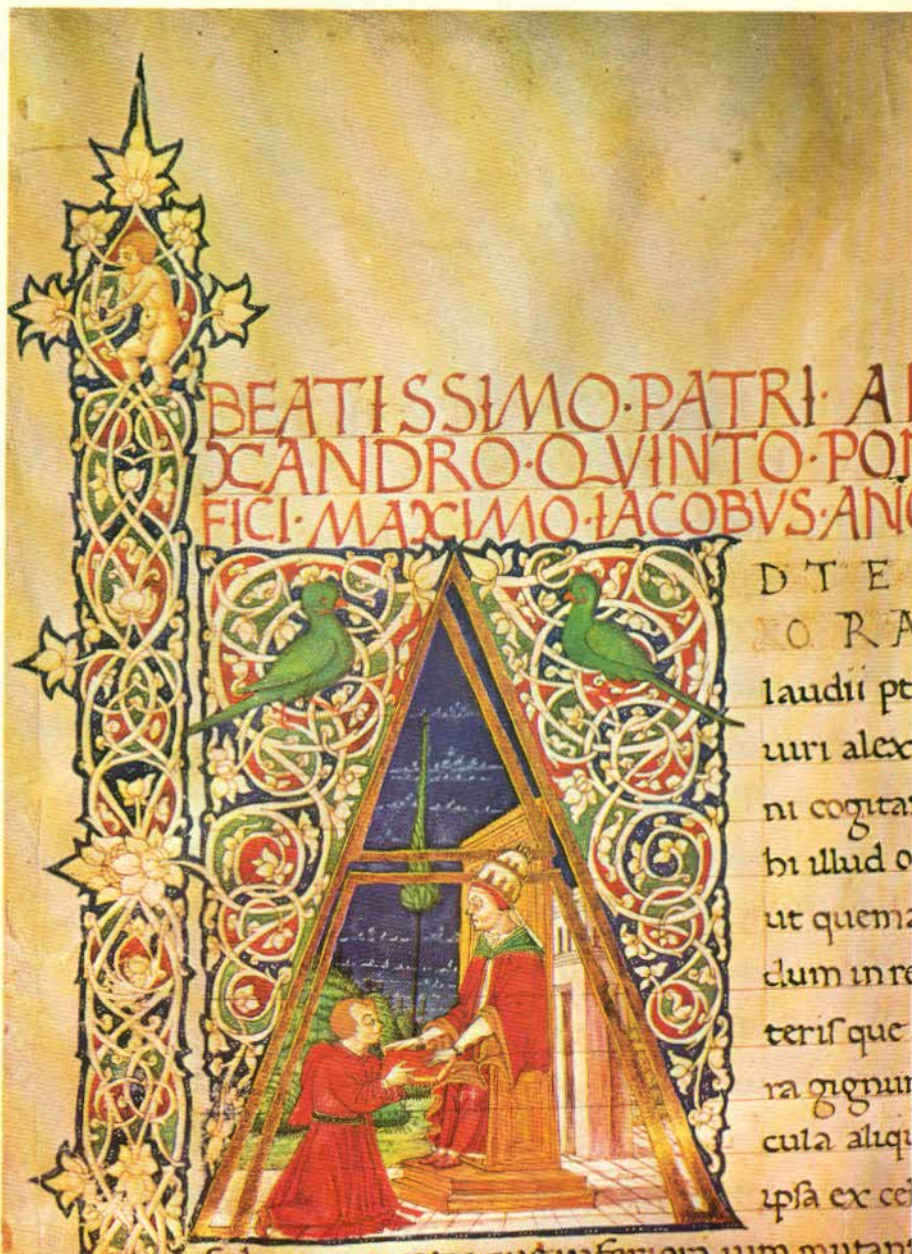 BEATISSIMO·PATRI·A
XANDRO·QVINTO·PON
FICI·MAXIMO·IACOBVS·ANG
A
D T E
O R A
laudii pt
uiri alex
ni cogitan
bi illud o
ut quema
dum in re
teris que
ra gignun
cula aliqu
ipsa ex cel
mutant